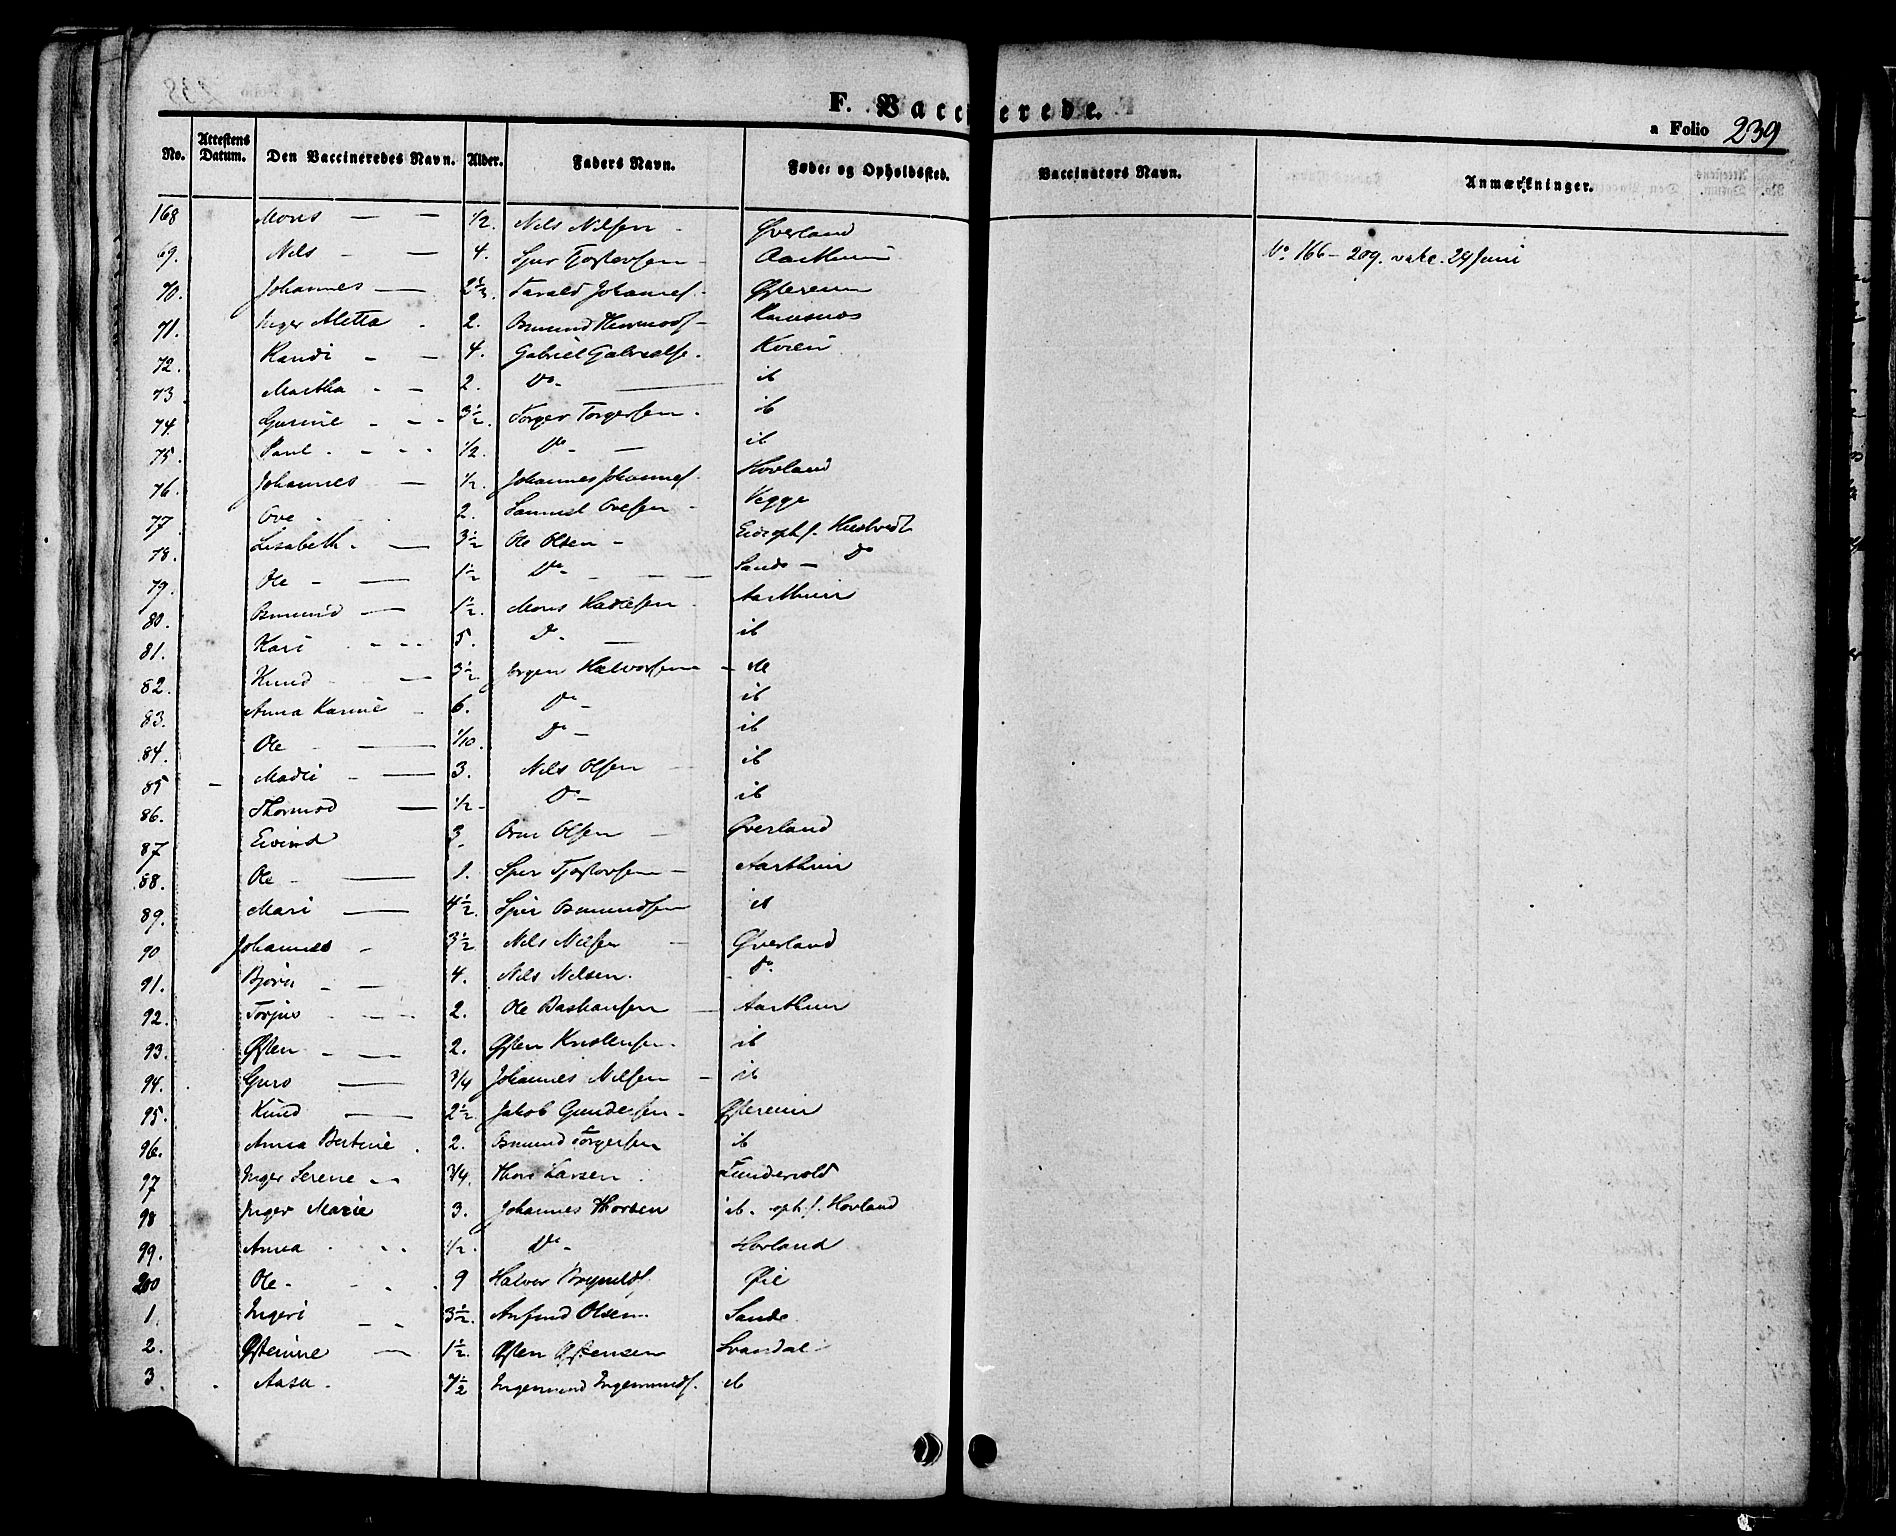 F. Vaccinerede.
a Folio 239
No. Attestens Datum. Den Vaccineredes Navn. Alder. Faders Navn. Føde- og Opholdssted. Vaccinators Navn. Anmærkninger.
168 Mons — — 1/2. Nils Nilsen - Øverland
69. Nils - — 4. Sjur Tjostovsen - Aarthuun No 166 - 209. vake. 29 Juni
70. Johannes — 2 1/2. Tarald Johannes. Østereim
71. Inger Metta . 2. Osmund - Ramsnes
72. Randi - — 4. Gabriel Gabrielse. Koren
73 Martha - — 2. Do - — ib
74. Gurine - - - 3 1/2. Torger Torgersen. ib
75. Paul. - - - 1/2. Do - — ib
76. Johannes — 1/2. Johannes Johannes. Hovland
77. Ove - . 2. Samuel Ovesen - Vegge
78. Lisabeth. — 3 1/2 Ole Olsen - oph f.
79. Ole - — 1 1/2 Do - - — — Sande — Do
80. Osmund — 1 1/2. Mons Aarthuun
81. Kari . - - - 5. Do - — ib
82. Knud - — 3 1/2 Jørgen Halvorsen - de
83. Anna Karine - 6. Do - ib
84. Ole - — 1/10. Do - ib
85 - — 3. Nils Olsen - ib
86. Thormod — 1/2 - Do - ib
87 Eivind 3. Orm Olsen - Øverland
88. Ole - — 1. Sjur Tjostovsen - Aarthuun
89. Mari — 4 1/2. Sjur Osmundsen ib
90 Johannes - 3 1/2 Nils Nilsen - Øverland
91. Bjørn - — 4. Nils Nilsen. - Do
92. Torjus - - - 2. Ole - Aarthuun
93. Østen - — 2. Østen ib
94. Guro — 3/4 Johannes Nilsen - ib
95. Knud — 2 1/2. Jakob Gundersen - Østereim
96. Anna Bertine . 2. Osmund Torgersen ib
97 Inger Serene - - 3/4. Thore Larsen
98 Inger Marie 3. Johannes Thorsen ib. oph. f. Hovland
99. Anna . . . 1/2. Do - Hovland
200 Ole - - . . 9 Halvor Øie
1. Ingeri - - 3 1/2. Anfind Olsen. Sande
2. Østenine — 1 1/2. Østen Østensen Svandal
3 . Aasa. 7 1/2 Ingemund Ingemunds. ib